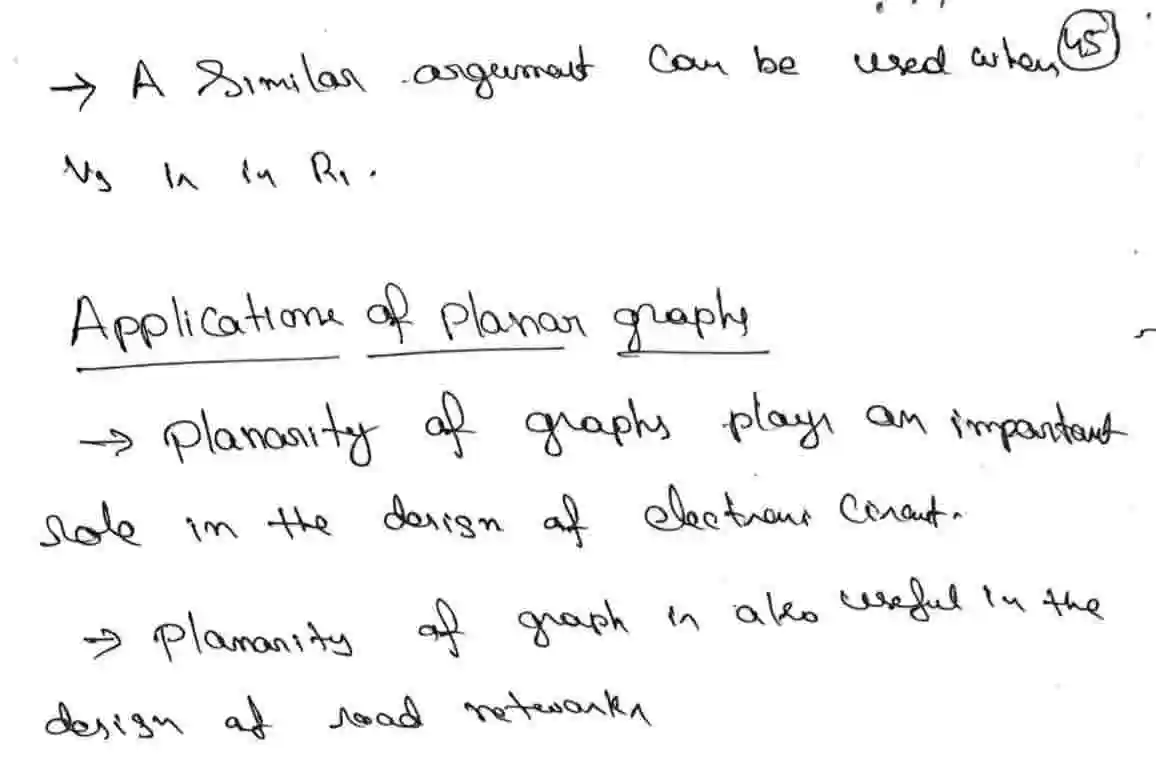 → A Similar argument can be used when 45
V3 is in R1.
Applications of planar graphs
→ planarity of graphs plays an important
role in the design of electronic circuit.
→ planarity of graph is also useful in the
design of road networks